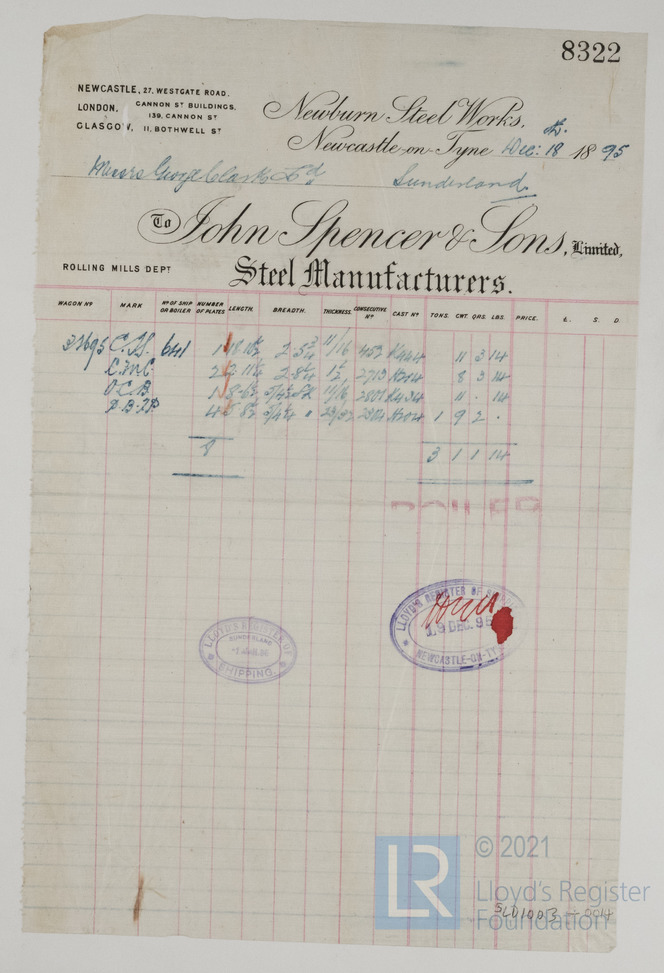 8322
NEWCASTLE, 27. WESTGATE ROAD.
LONDON, CANNON ST BUILDINGS,
139, CANNON ST
GLASGOW, 11, BOTHWELL ST
Newburn Steel Works,
Newcastle-on-Tyne Dec: 18 1895
Messrs George Clark Ld Sunderland
To John Spencer & Sons, Limited,
ROLLING MILLS DEPT
Steel Manufacturers.
WAGON No MARK No OF SHIP OR BOILER NUMBER OF PLATES LENGTH. BREADTH. THICKNESS. CONSECUTIVE No CAST No TONS. CWT. QRS. LBS. PRICE. £. S. D.
641 1 11/16 453 11 3 14
2 2713 8 3 14
O.C.B. 1 11/16 2801 11 . 14
4 23/32 1 9 2 .
8 3 1 1 14
BOILER
LLOYD'S REGISTER OF SHIPPING
19 DEC. 95
NEWCASTLE-ON-TYNE
LLOYD'S REGISTER OF
SUNDERLAND
SHIPPING
LR
© 2021
Lloyd's Register
Foundation
SLD1003-0014